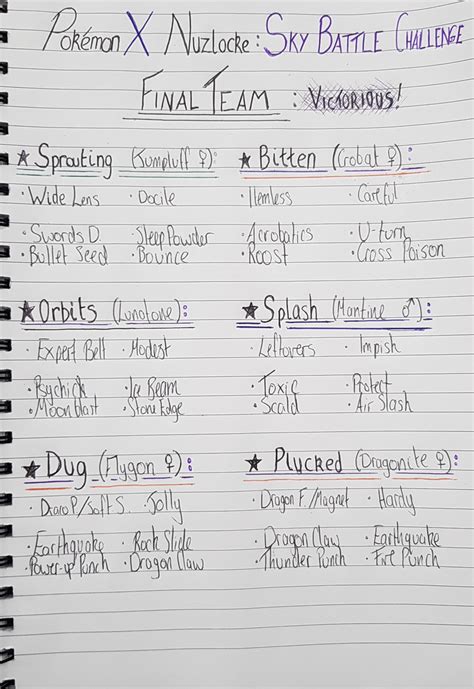 Pokémon X Nuzlocke: Sky Battle Challenge
Final Team : Victorious!
★ Sprouting (Jumpluff ♀):
· Wide Lens · Docile
· Swords D. · Sleep Powder
· Bullet Seed · Bounce
★ Bitten (Crobat ♀):
· Itemless · Careful
· Acrobatics · U-turn
· Roost · Cross Poison
★ Orbits (Lunatone):
· Expert Belt · Modest
· Psychick · Ice Beam
· Moonblast · Stone Edge
★ Splash (Mantine ♂):
· Leftovers · Impish
· Toxic · Protect
· Scald · Air Slash
★ Dug (Flygon ♀):
· Draco P/Soft S. · Jolly
· Earthquake · Rock Slide
· Power-up Punch · Dragon Claw
★ Plucked (Dragonite ♀):
· Dragon F./Magnet · Hardy
· Dragon Claw · Earthquake
· Thunder Punch · Fire Punch